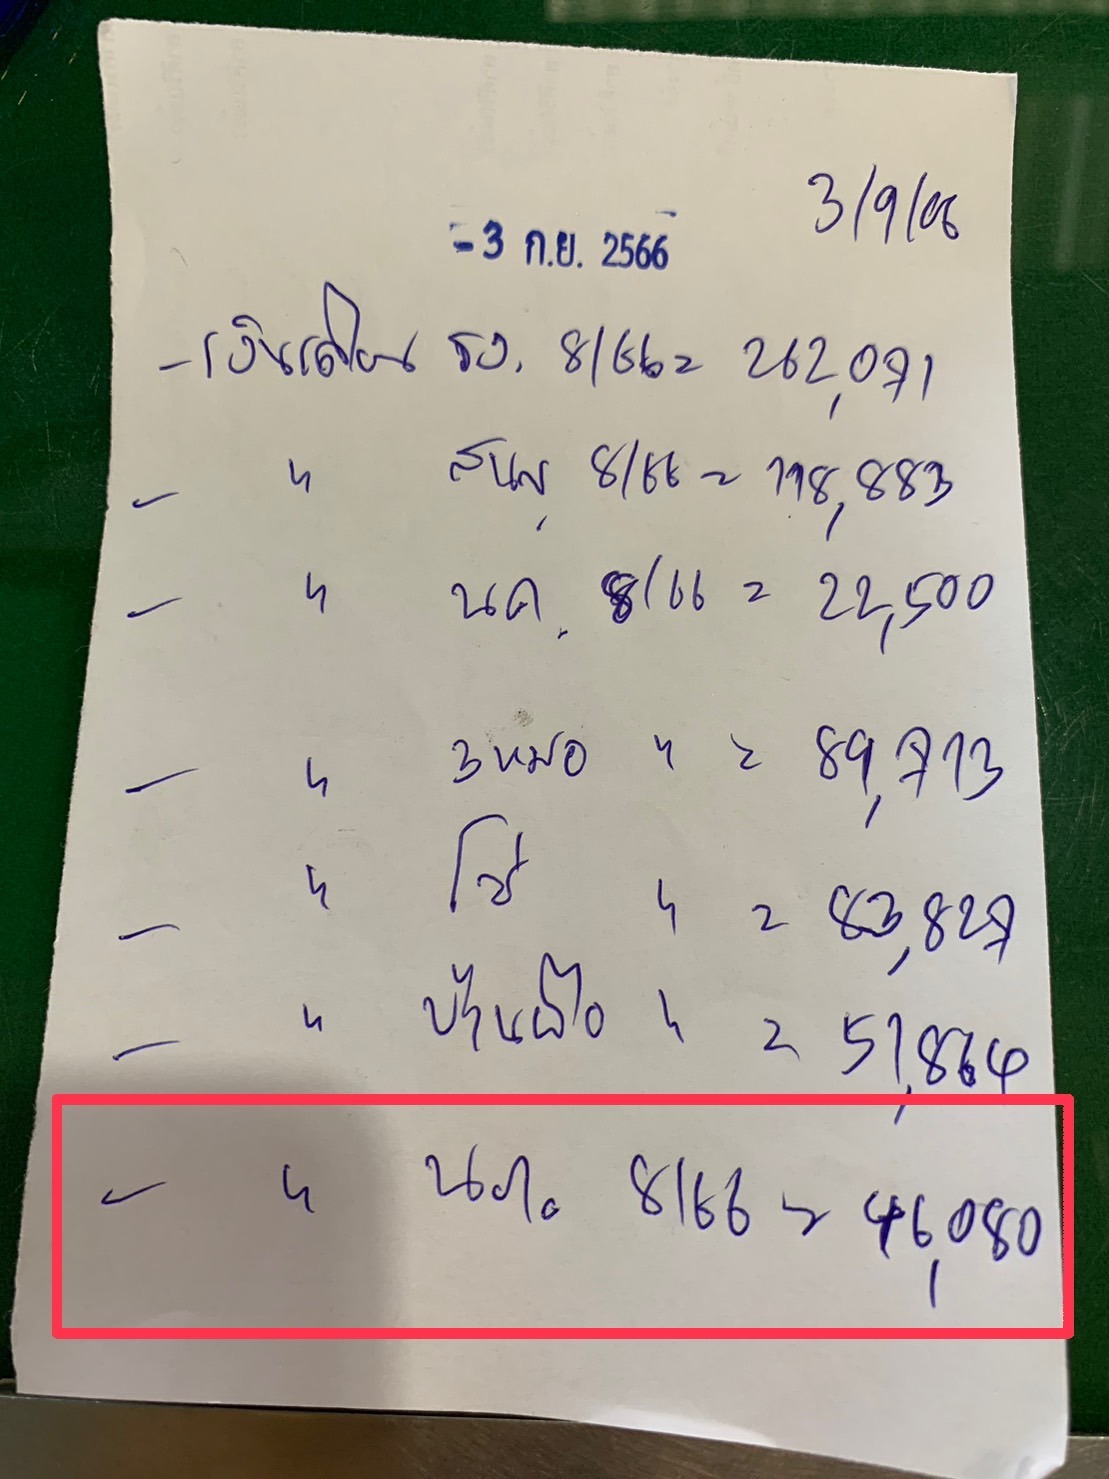 3/9/66
-3 ก.ย. 2566
- เงินเดือน รง. 8/66 = 262,071
- " สนญ. 8/66 = 118,883
- " นค. 8/66 = 22,500
- " 3 หมอ " = 89,713
- " โช่ " = 83,827
- " บ้านผือ " = 51,864
- " 8/66 = 46,080